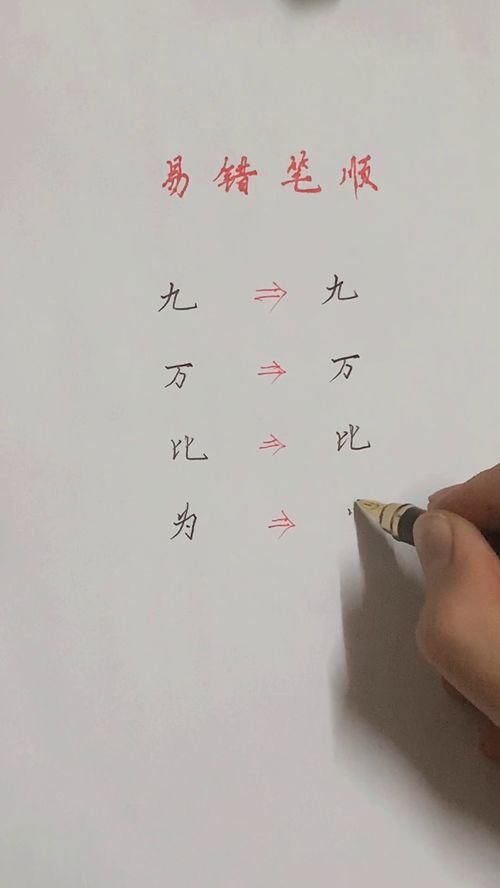 易错笔顺
九 ⇒ 九
万 ⇒ 万
比 ⇒ 比
为 ⇒